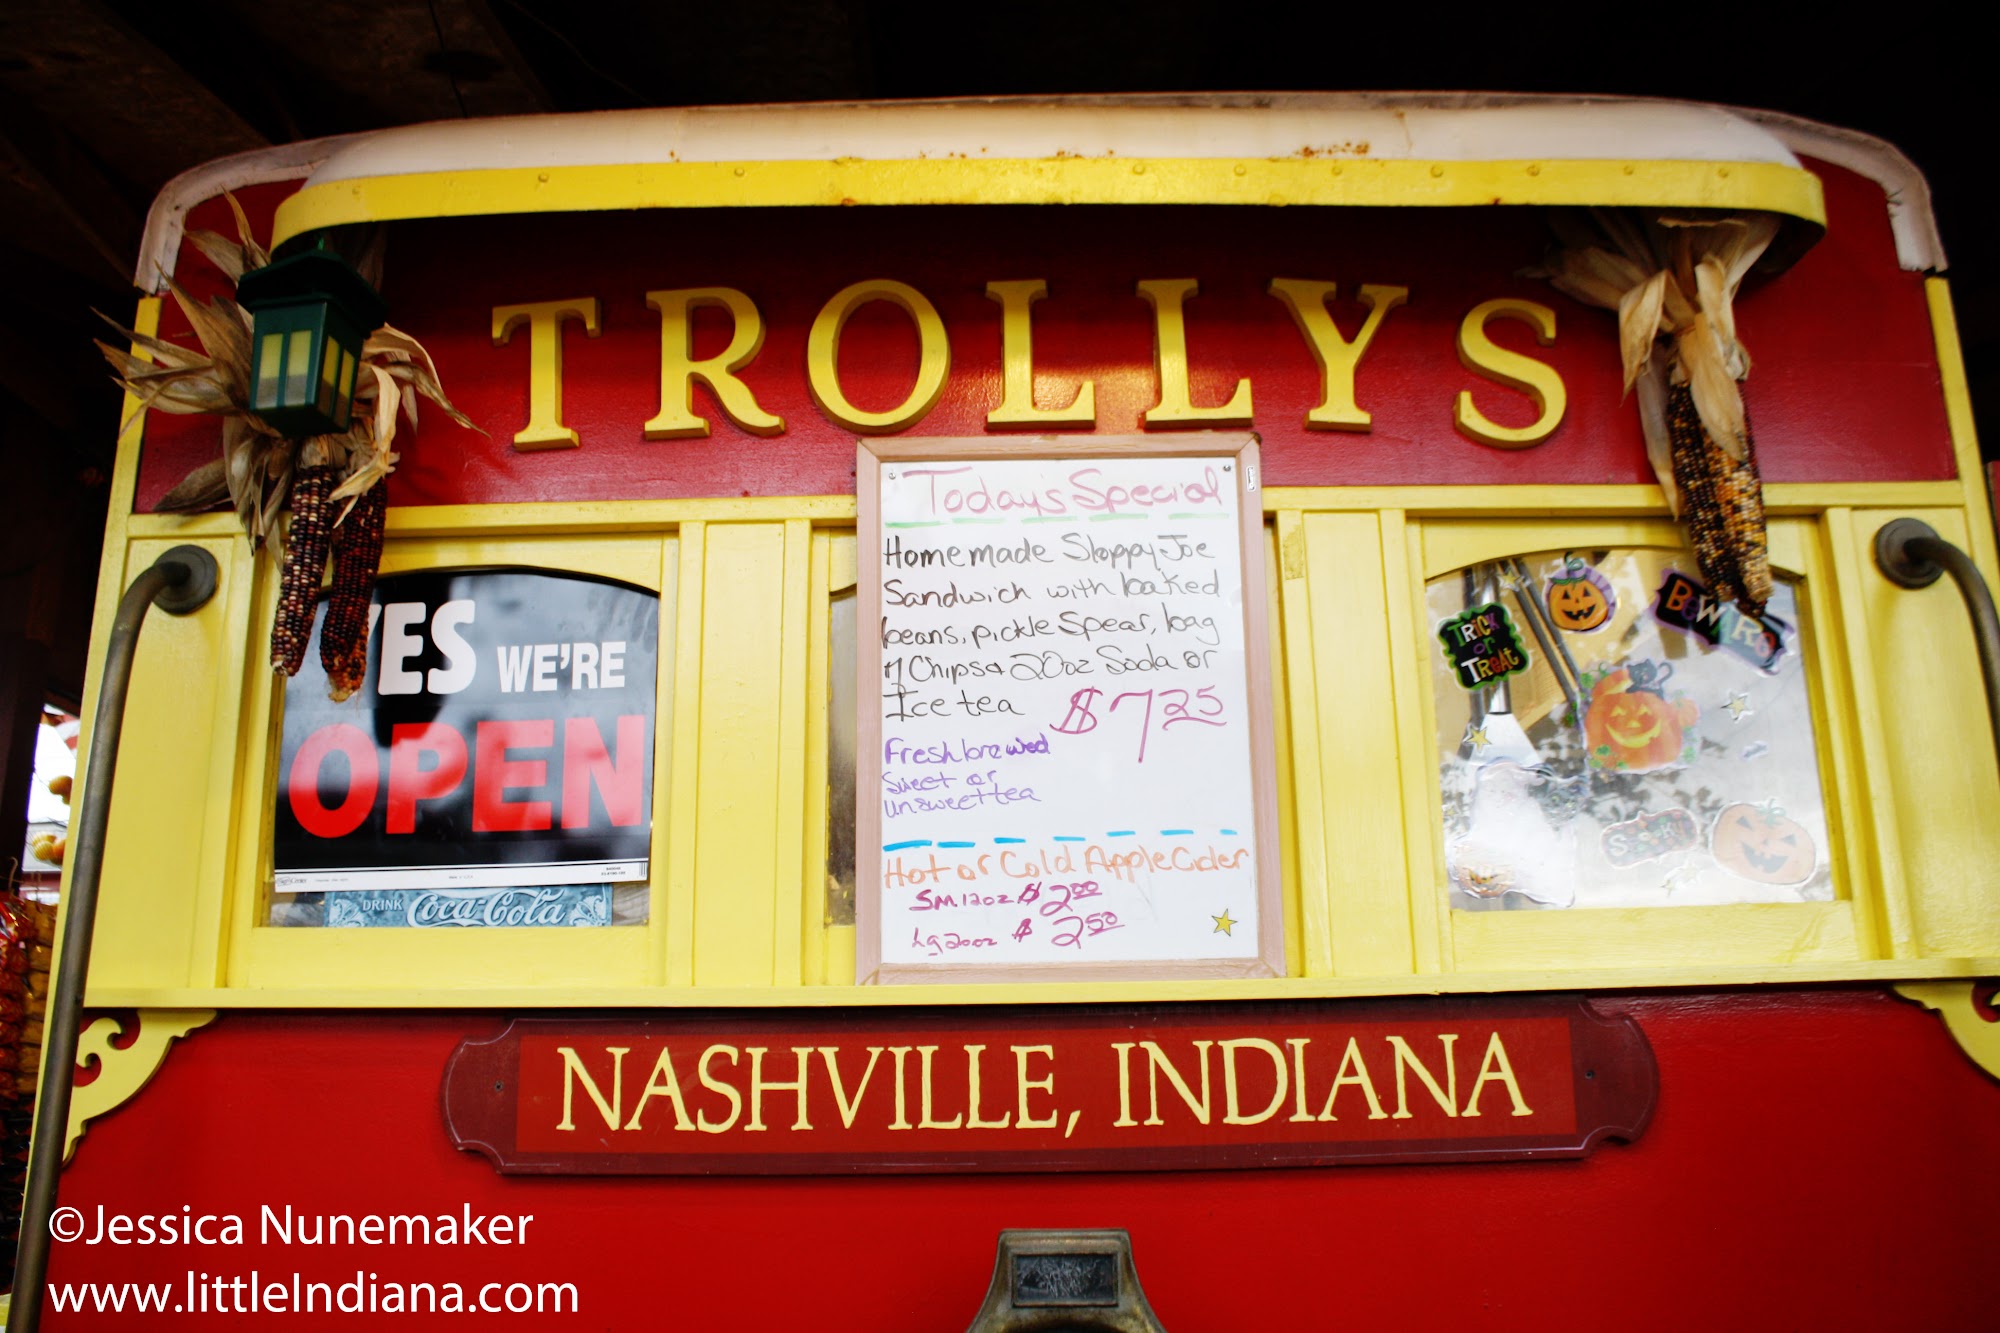 TROLLYS
Today's Special
Homemade Sloppy Joe
Sandwich with baked
beans, pickle Spear, bag
Chips & 20oz Soda or
Ice tea $7.25
Fresh brewed
Sweet or
unsweet tea
Hot or Cold Apple Cider
Sm 12oz $2.00
Lg 20oz $2.50
YES WE'RE
OPEN
DRINK Coca-Cola
TRICK
or
TREAT
BEWARE
NASHVILLE, INDIANA
©Jessica Nunemaker
www.littleIndiana.com